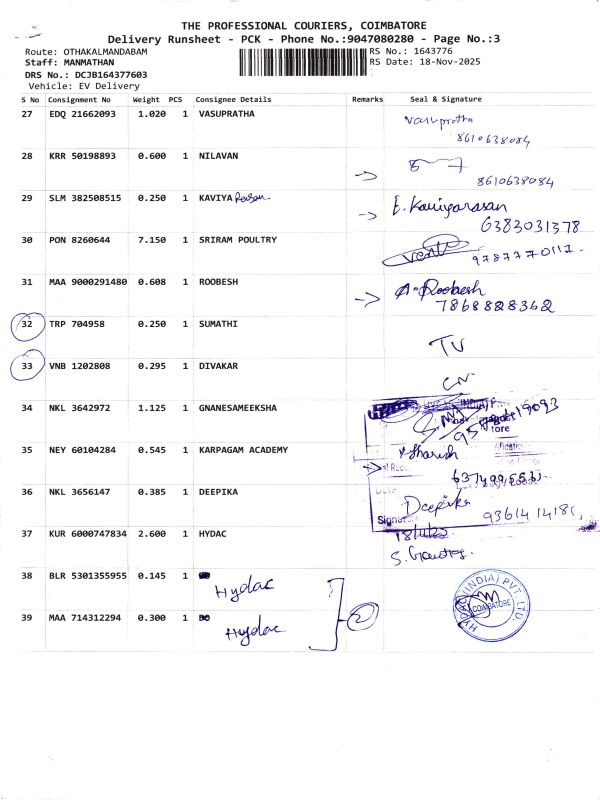 THE PROFESSIONAL COURIERS, COIMBATORE
Delivery Runsheet - PCK - Phone No.:9047080280 - Page No.:3
Route: OTHAKALMANDABAM RS No.: 1643776
Staff: MANMATHAN RS Date: 18-Nov-2025
DRS No.: DCJB164377603
Vehicle: EV Delivery
S No Consignment No Weight PCS Consignee Details Remarks Seal & Signature
27 EDQ 21662093 1.020 1 VASUPRATHA Vasupratha
8610638084
28 KRR 50198893 0.600 1 NILAVAN
8610638084
29 SLM 382508515 0.250 1 KAVIYA E. Kaviyarasan
6383031378
30 PON 8260644 7.150 1 SRIRAM POULTRY
9787770117
31 MAA 9000291480 0.608 1 ROOBESH A. Roobesh
7868828362
32 TRP 704958 0.250 1 SUMATHI
TV
33 VNB 1202808 0.295 1 DIVAKAR
CN
34 NKL 3642972 1.125 1 GNANESAMEEKSHA
35 NEY 60104284 0.545 1 KARPAGAM ACADEMY Sharish
36 NKL 3656147 0.385 1 DEEPIKA Deepika
37 KUR 6000747834 2.600 1 HYDAC
38 BLR 5301355955 0.145 1 Hydac
39 MAA 714312294 0.300 1 Hydac 2
HYDAC (INDIA) PVT. LTD.
COIMBATORE